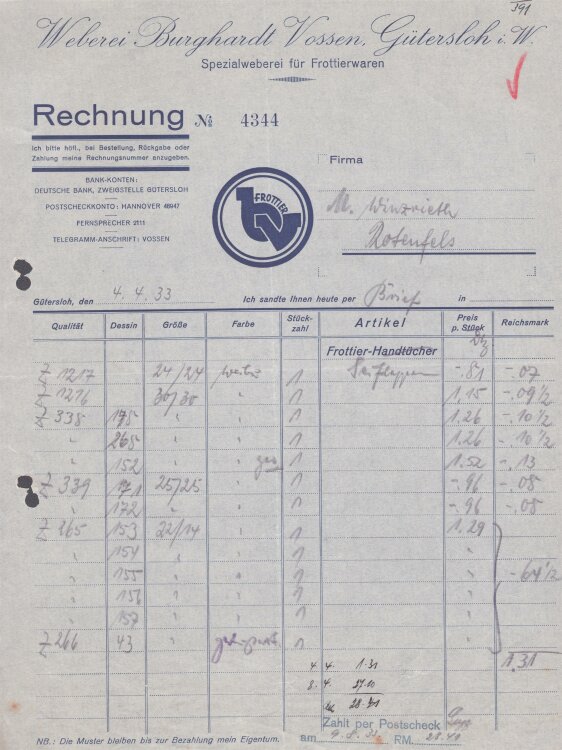 391
Weberei Burghardt Vossen, Gütersloh i. W.
Spezialweberei für Frottierwaren
Rechnung № 4344
Ich bitte höfl., bei Bestellung, Rückgabe oder
Zahlung meine Rechnungsnummer anzugeben.
BANK-KONTEN:
DEUTSCHE BANK, ZWEIGSTELLE GÜTERSLOH
POSTSCHECKKONTO: HANNOVER 48947
FERNSPRECHER 2111
TELEGRAMM-ANSCHRIFT: VOSSEN
FROTTIER
Firma
M.
Rotenfels
Gütersloh, den 4. 4. 33 Ich sandte Ihnen heute per Brief in
Qualität Dessin Größe Farbe Stückzahl Artikel Preis p. Stück Reichsmark
Frottier-Handtücher Dtz
Z 1217 24/24 1 Seiflappen -.81 -.07
Z 1216 30/30 " 1 1.15 -.09 1/2
Z 338 178 " " 1 1.26 -.10 1/2
" 268 " " 1 1.26 -.10 1/2
" 152 " 1 1.52 -.13
Z 339 171 25/25 " 1 -.96 -.08
" 172 " " 1 -.96 -.08
Z 265 153 22/14 " 1 1.29
" 154 " " 1 "
" 155 " " 1 " -.64 1/2
" 156 " " 1 "
" 157 " " 1 "
Z 266 43 " 1 "
4. 4. 1.31 1.31
8. 4. 27.10
28.41
Zahlt per Postscheck
am 9. 8. 33 RM 28.40
NB.: Die Muster bleiben bis zur Bezahlung mein Eigentum.